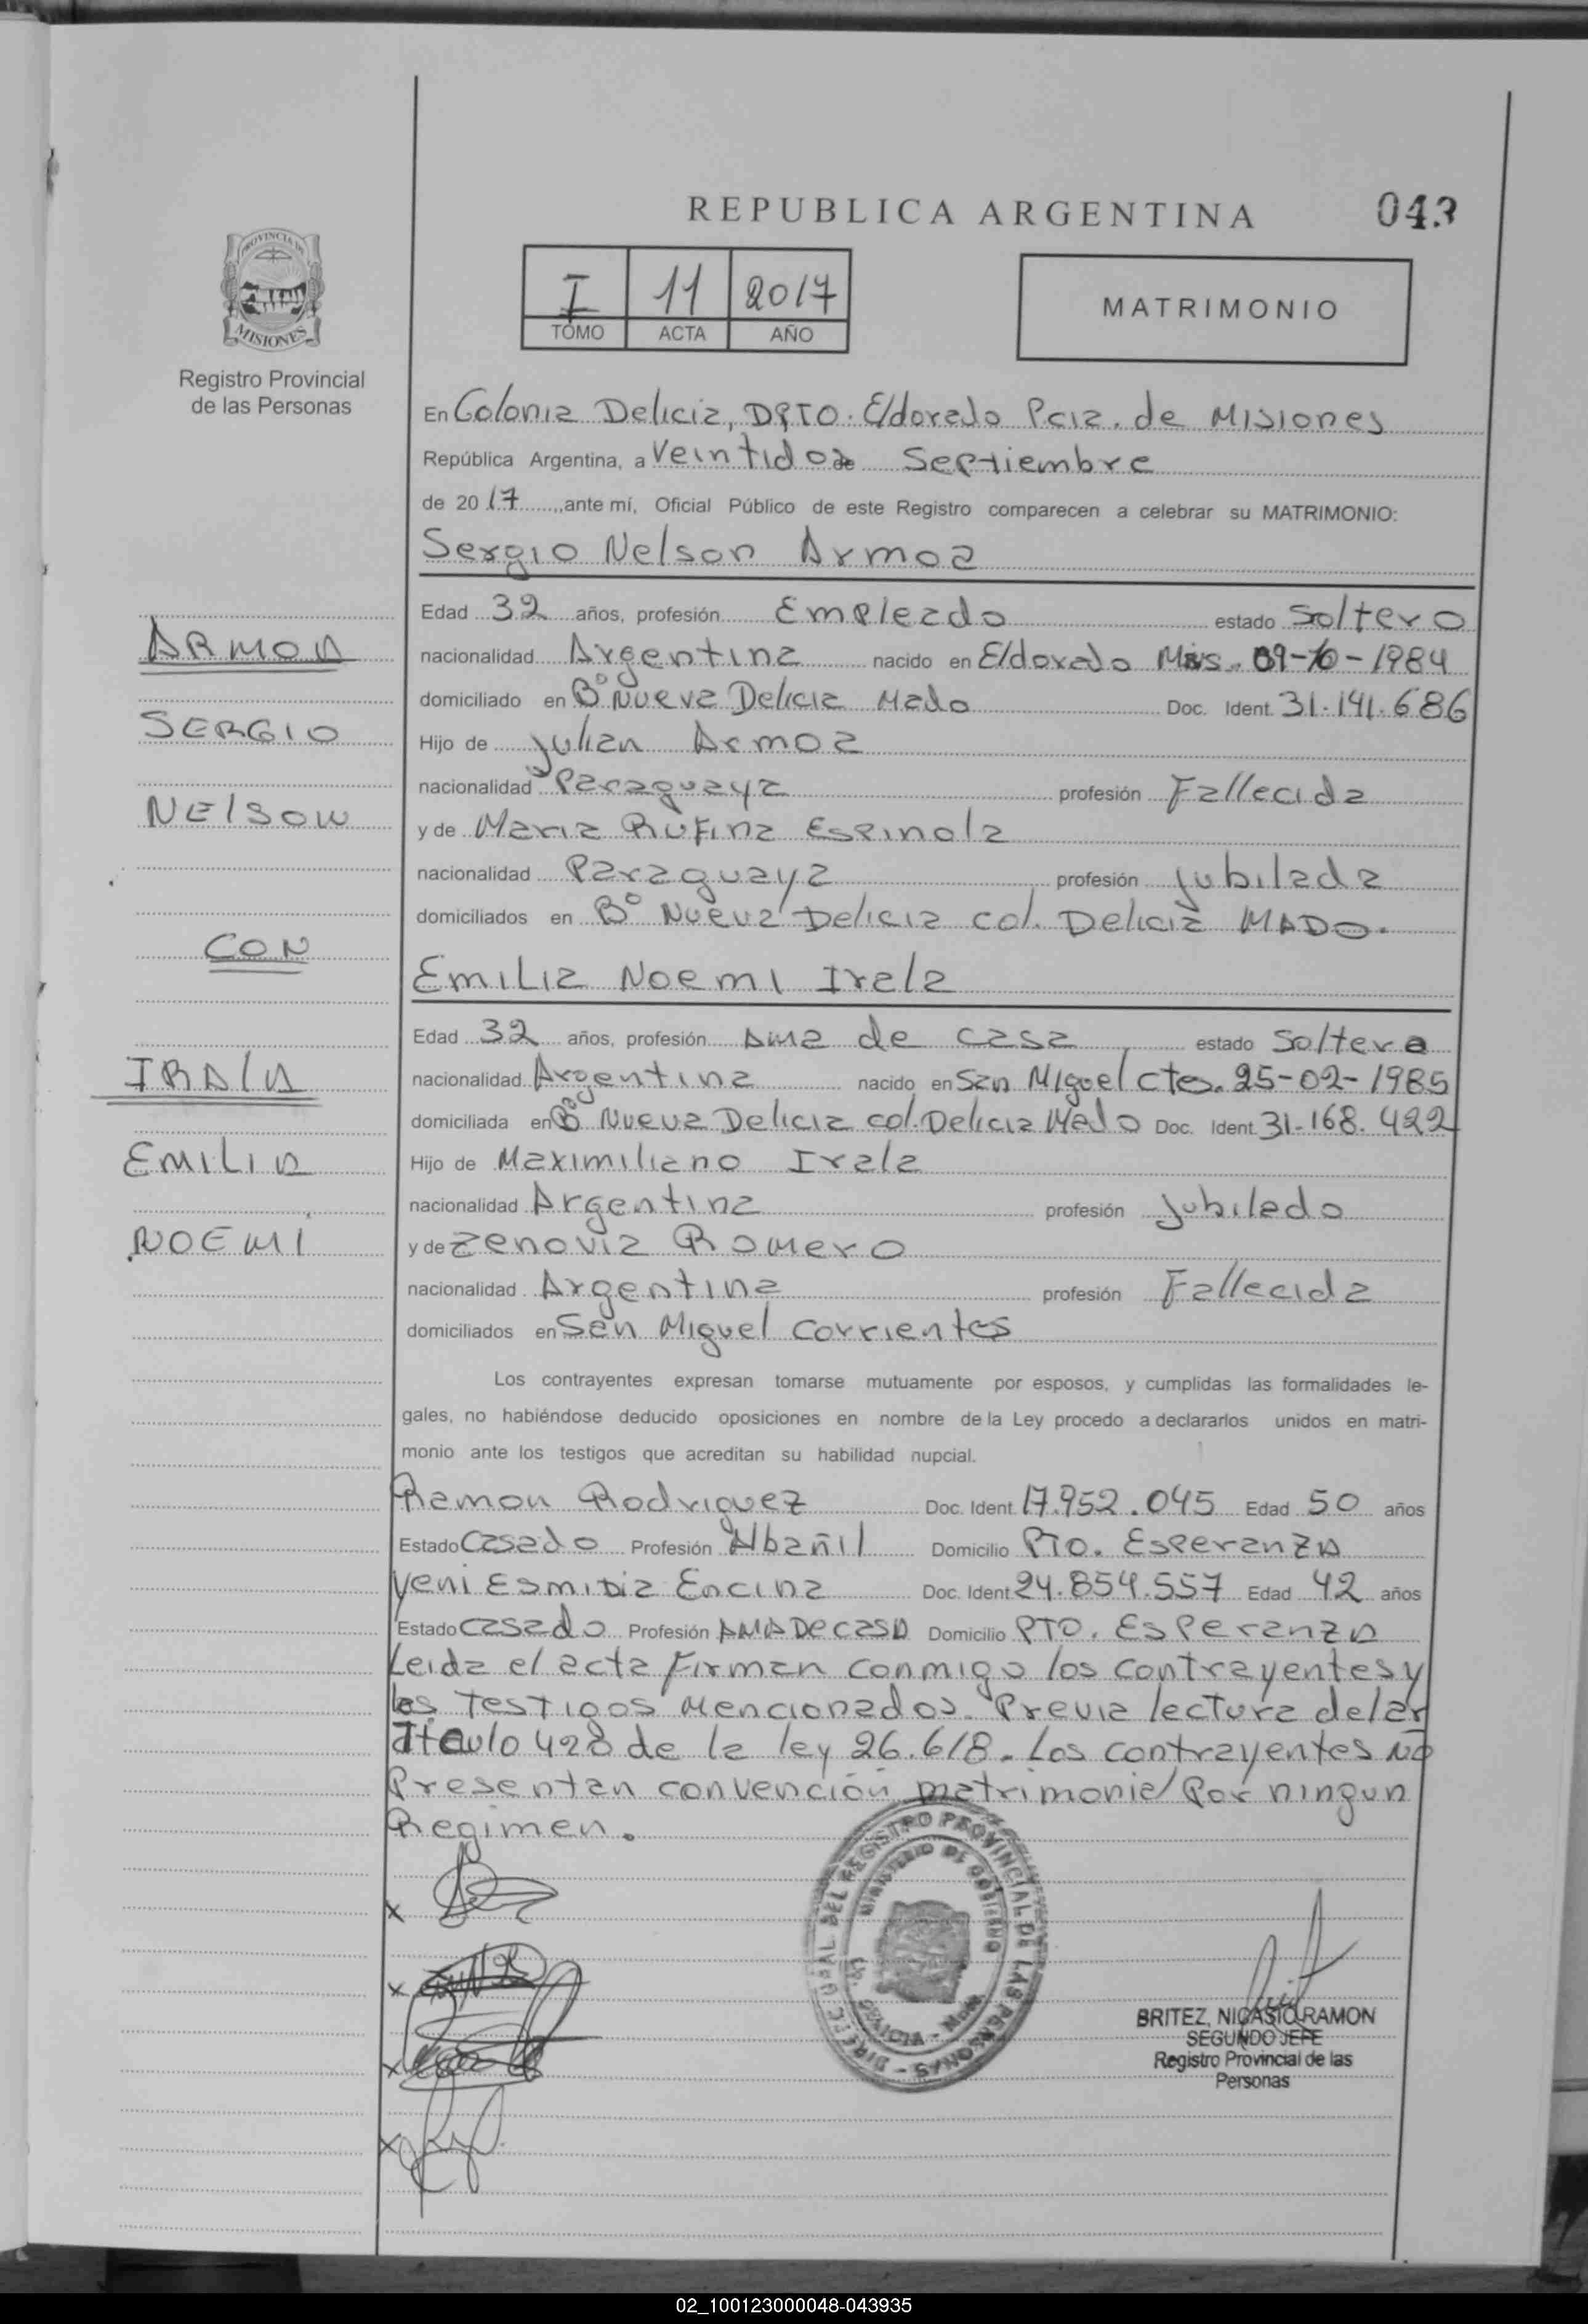 REPUBLICA ARGENTINA
043
PROVINCIA DE
MISIONES
Registro Provincial
de las Personas
I 11 2017
TOMO ACTA AÑO
MATRIMONIO
En Colonia Delicia, DPTO. Eldorado Pcia. de Misiones
República Argentina, a Veintidos de Septiembre
de 2017, ante mí, Oficial Público de este Registro comparecen a celebrar su MATRIMONIO:
Sergio Nelson Armoa
Edad 32 años, profesión Empleado estado Soltero
nacionalidad Argentina nacido en Eldorado Mis. 09-10-1984
domiciliado en B° Nueva Delicia Mado Doc. Ident. 31.141.686
Hijo de Julian Armoa
nacionalidad Paraguaya profesión Fallecida
y de Maria Rufina Espinola
nacionalidad Paraguaya profesión Jubilada
domiciliados en B° Nueva Delicia col. Delicia MADO.
Emilia Noemi Irala
Edad 32 años, profesión Ama de casa estado Soltera
nacionalidad Argentina nacido en San Miguel Ctes. 25-02-1985
domiciliada en B° Nueva Delicia col. Delicia Mado Doc. Ident. 31.168.422
Hijo de Maximiliano Irala
nacionalidad Argentina profesión Jubilado
y de Zenovia Romero
nacionalidad Argentina profesión Fallecida
domiciliados en San Miguel Corrientes
Los contrayentes expresan tomarse mutuamente por esposos, y cumplidas las formalidades le-
gales, no habiéndose deducido oposiciones en nombre de la Ley procedo a declararlos unidos en matri-
monio ante los testigos que acreditan su habilidad nupcial.
Ramon Rodriguez Doc. Ident. 17.952.045 Edad 50 años
Estado Casado Profesión Albañil Domicilio PTO. Esperanza
Yeni Esmidia Encina Doc. Ident. 24.854.557 Edad 42 años
Estado casado Profesión AMA De casa Domicilio PTO. Esperanza
Leida el acta firman conmigo los contrayentes y
los Testigos mencionados. Previa lectura del ar
tículo 428 de la ley 26.618. Los contrayentes no
Presentan convención matrimonial Por ningun
Regimen.
ARMOA
SERGIO
NELSON
CON
IRALA
EMILIA
NOEMI
DIREC GRAL DEL REGISTRO PROVINCIAL DE LAS PERSONAS
MINISTERIO DE GOBIERNO
BRITEZ, NICASIO RAMON
SEGUNDO JEFE
Registro Provincial de las
Personas
02_100123000048-043935